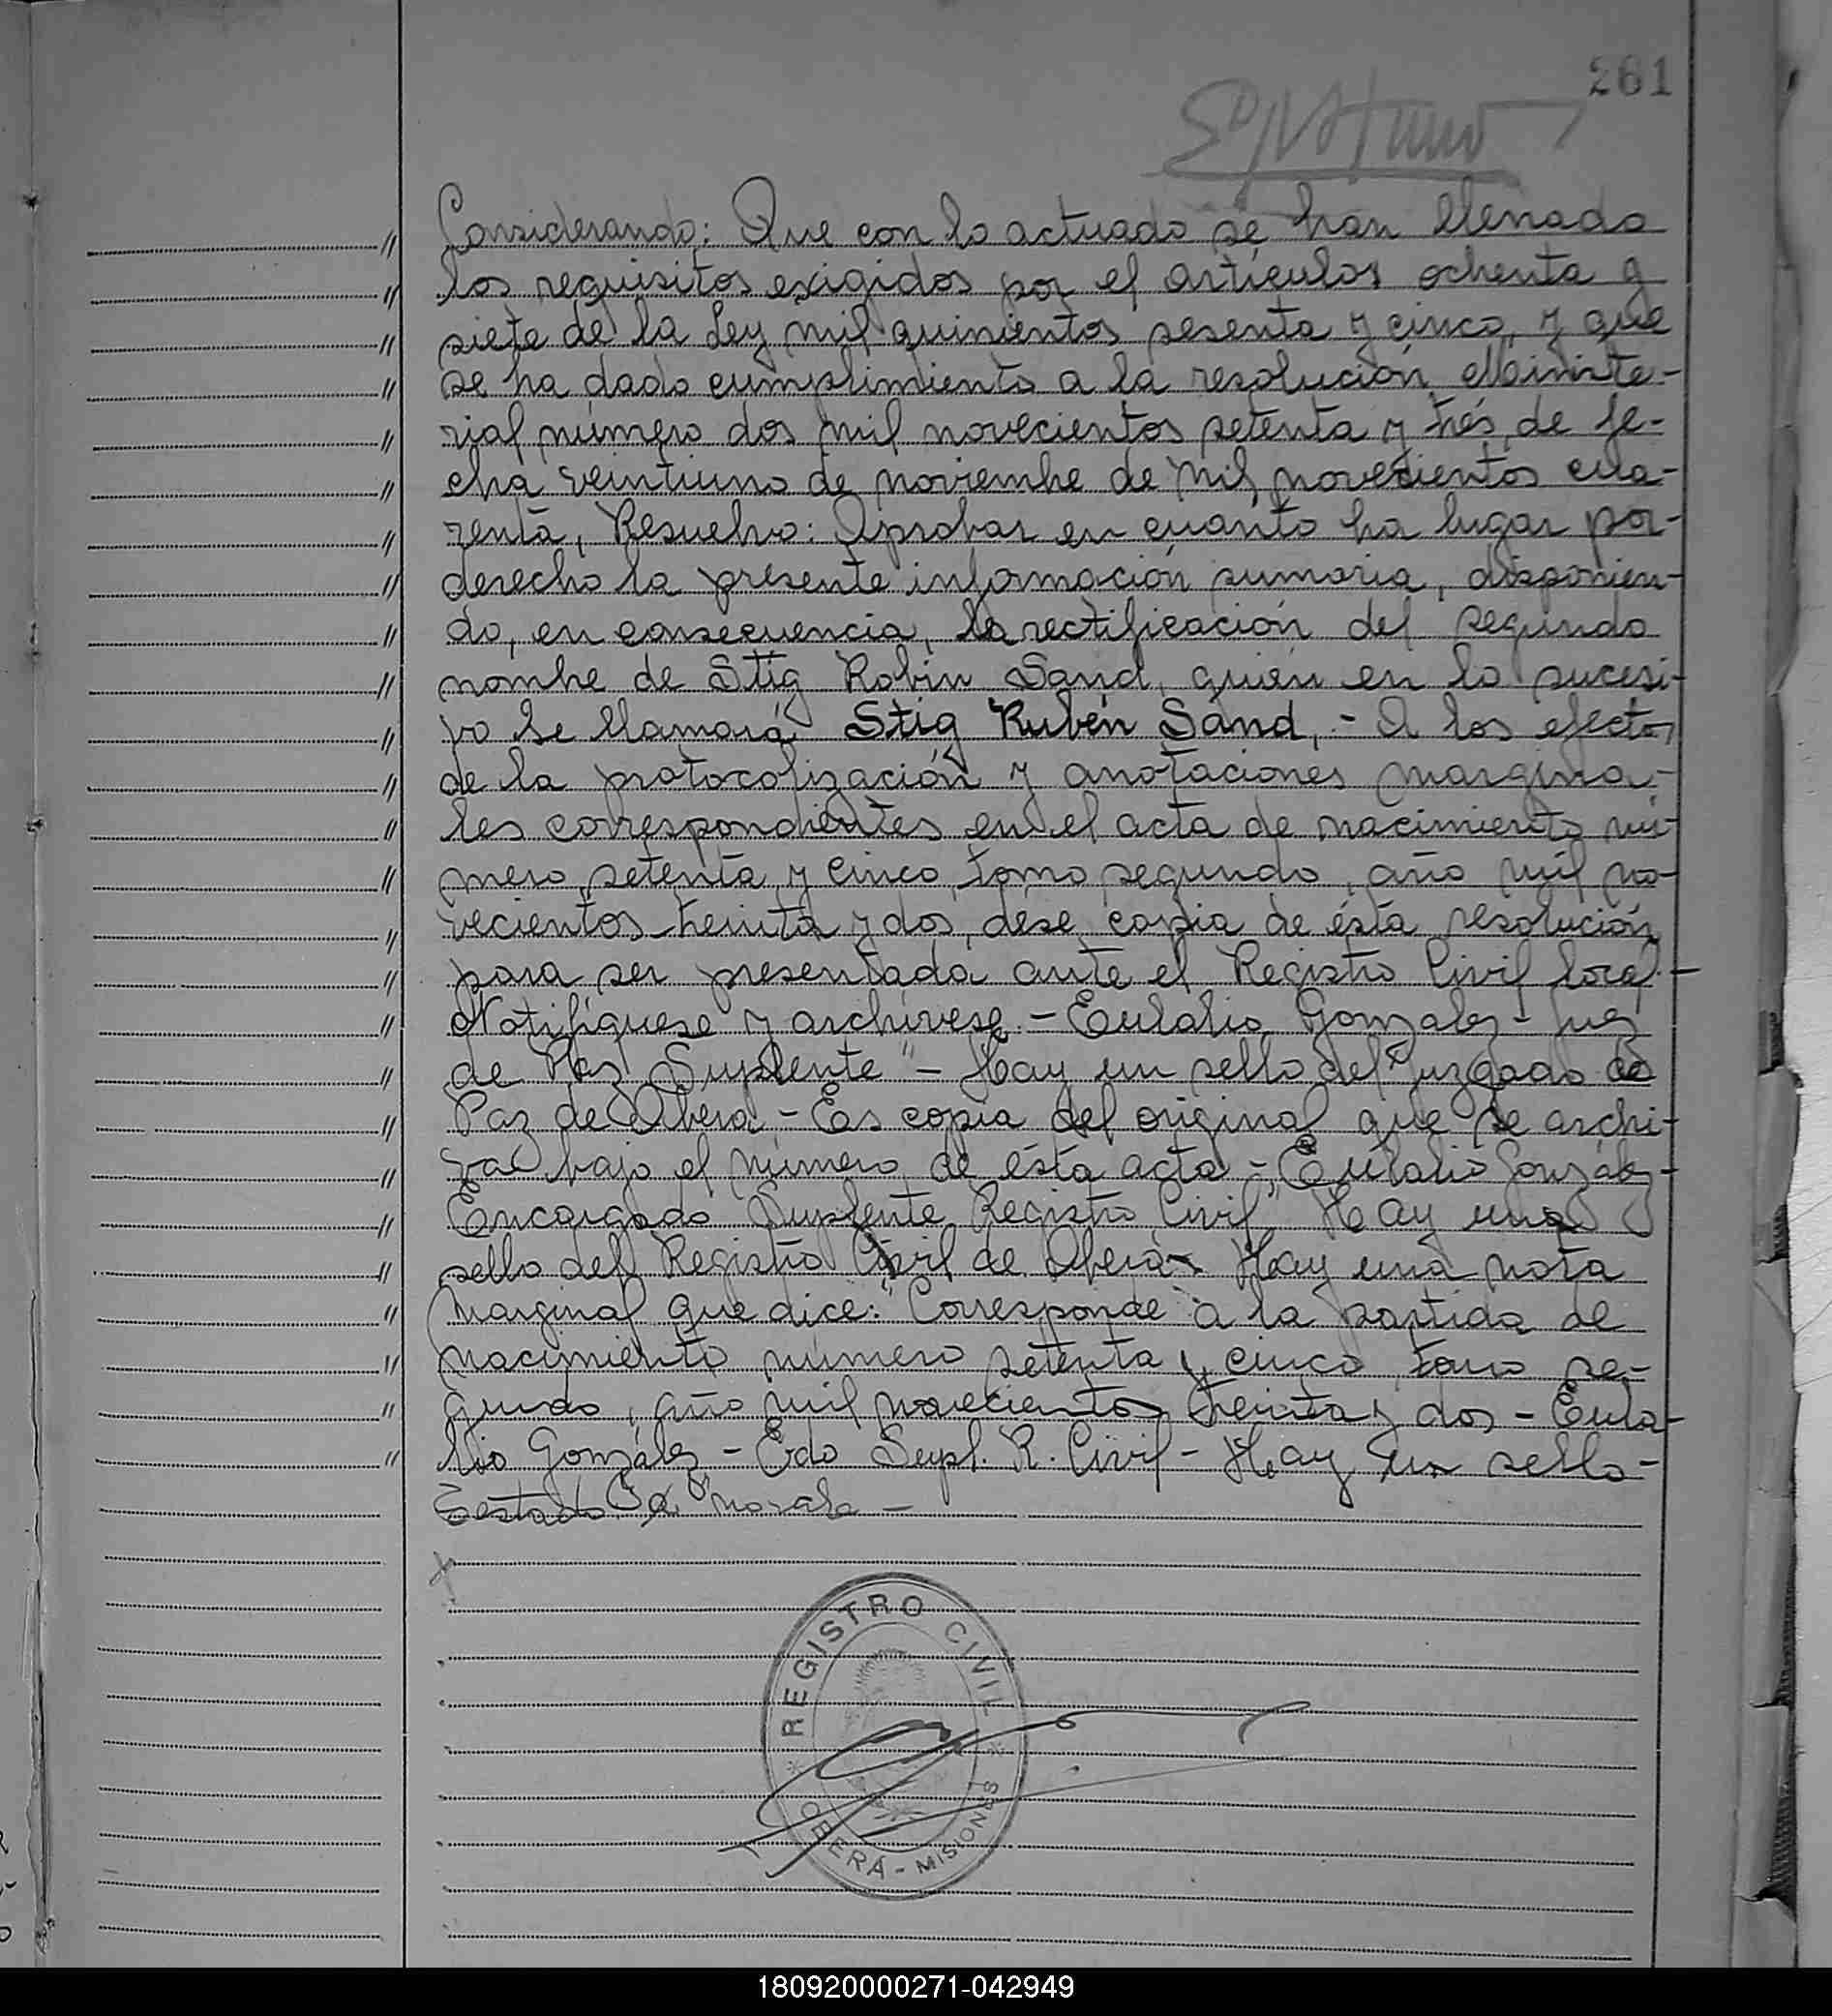 261
Considerando: Que con lo actuado se han llenado
los requisitos exigidos por el artículos ochenta y
siete de la Ley mil quinientos sesenta y cinco, y que
se ha dado cumplimiento a la resolución Ministe-
rial número dos mil novecientos setenta y trés, de fe-
cha veintiuno de noviembre de mil novecientos cua-
renta, Resuelvo: Aprobar en cuanto ha lugar por-
derecho la presente información sumaria, disponien-
do, en consecuencia, la rectificación del segundo
nombre de Stig Robin Sand, quién en lo sucesi-
vo se llamará Stig Rubén Sand,.- A los efectos
de la protocolización y anotaciones margina-
les correspondientes en el acta de nacimiento nú-
mero setenta y cinco, tomo segundo, año mil no-
vecientos treinta y dos, dése copia de ésta resolución
para ser presentada ante el Registro Civil local.-
Notifíquese y archívese.- Eulalio Gonzalez - Juez
de Paz Suplente" - Hay un sello del Juzgado de
Paz de Oberá.- Es copia del original que se archi-
va bajo el número de ésta acta.- Eulalio González-
Encargado Suplente Registro Civil" Hay una
sello del Registro Civil de Oberá- Hay una nota
marginal que dice: "Corresponde a la partida de
nacimiento número setenta y cinco tomo se-
gundo, año mil novecientos treinta y dos - Eula-
lio González - Edo Supl. R. Civil - Hay un sello-
Testado
REGISTRO CIVIL
OBERÁ - MISIONES
180920000271-042949